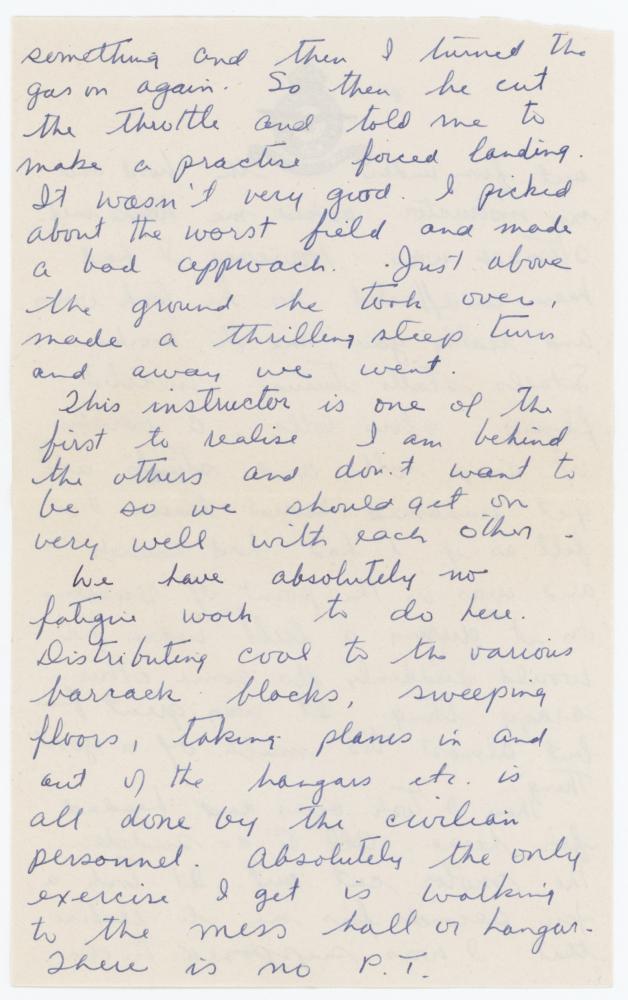 something and then I turned the
gas on again. So then he cut
the throttle and told me to
make a practise forced landing.
It wasn't very good. I picked
about the worst field and made
a bad approach. Just above
the ground he took over,
made a thrilling steep turn
and away we went.
This instructor is one of the
first to realise I am behind
the others and don't want to
be so we should get on
very well with each other.
We have absolutely no
fatigue work to do here.
Distributing coal to the various
barrack blocks, sweeping
floors, taking planes in and
out of the hangars etc. is
all done by the civilian
personnel. Absolutely the only
exercise I get is walking
to the mess hall or hangar.
There is no P.T.